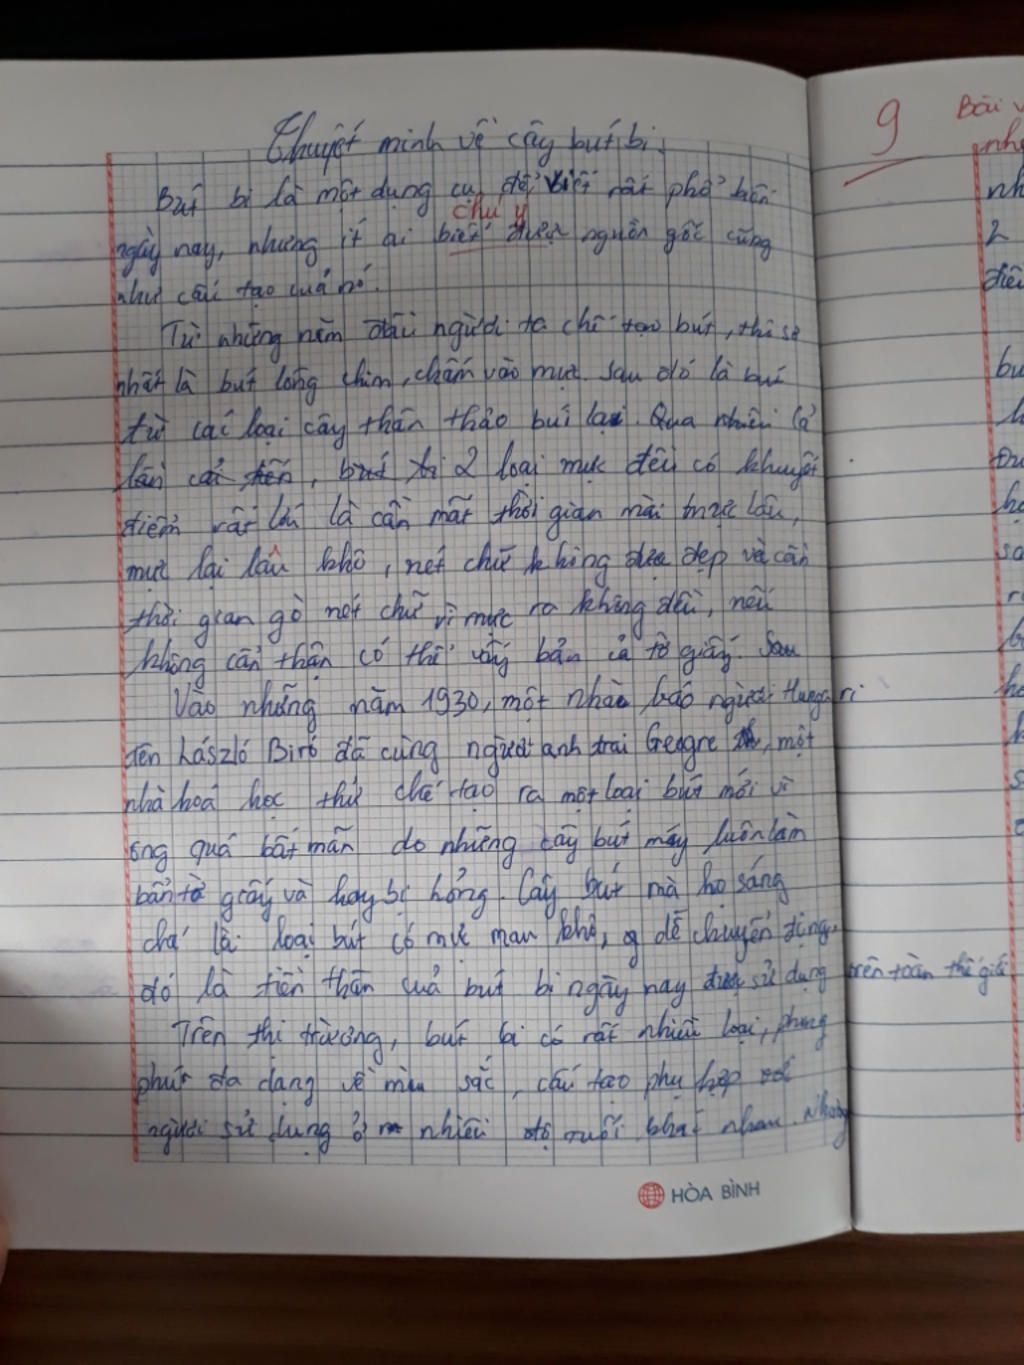 Thuyết minh về cây bút bi.
Bút bi là một dụng cụ để viết rất phổ biến
chú ý
ngày nay, nhưng ít ai biết được nguồn gốc cũng
như cấu tạo cuả nó.
Từ những năm đầu người ta chế tạo bút, thô sơ
nhất là bút lông chim, chấm vào mực. Sau đó là bút
từ các loại cây thân thảo bút lại. Qua nhiều
lần cải tiến, bút bi 2 loại mực đều có khuyết
điểm rất lớn là cần mất thời gian mài mực lâu,
mực lại lâu khô, nét chữ không đẹp và cần
thời gian gò nét chữ vì mực ra không đều, nếu
không cẩn thận có thể vấy bẩn cả tờ giấy. Sau
Vào những năm 1930, một nhà báo người Hungari
tên László Biró đã cùng người anh trai Geogre, một
nhà hoá học thử chế tạo ra một loại bút mới vì
ông quá bất mãn do những cây bút máy luôn làm
bẩn tờ giấy và hay bị hỏng. Cây bút mà họ sáng
chế là loại bút có mực mau khô, dễ chuyển động,
đó là tiền thân cuả bút bi ngày nay được sử dụng trên toàn thế giới
Trên thị trường, bút bi có rất nhiều loại, phong
phú đa dạng về màu sắc, cấu tạo phụ hợp với
người sử dụng ở nhiều độ tuổi khác nhau. Nhưng
HÒA BÌNH
9
Bài
nh
2
điề
bu